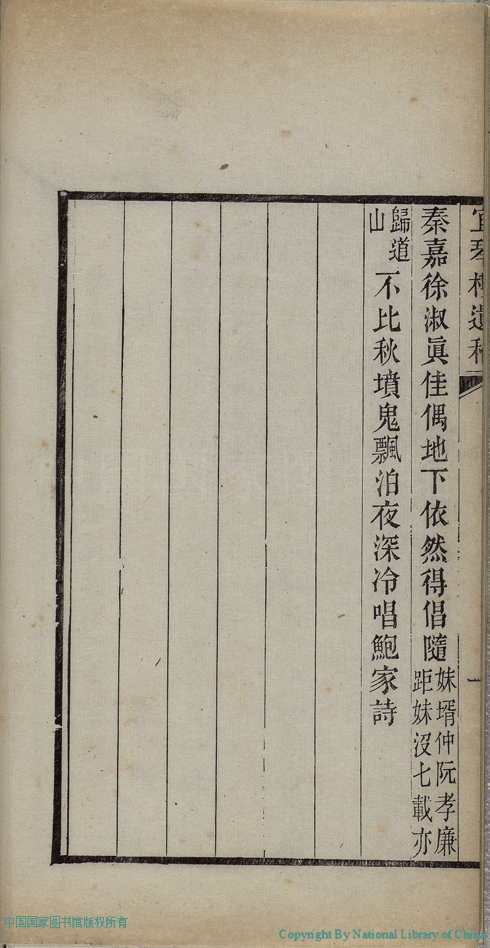 宜琴樓遺稿
一
秦嘉徐淑眞佳偶地下依然得倡隨
妹壻仲阮孝廉
距妹沒七載亦
歸道
山
不比秋墳鬼飄泊夜深冷唱鮑家詩
中国国家图书馆版权所有
Copyright By National Library of China